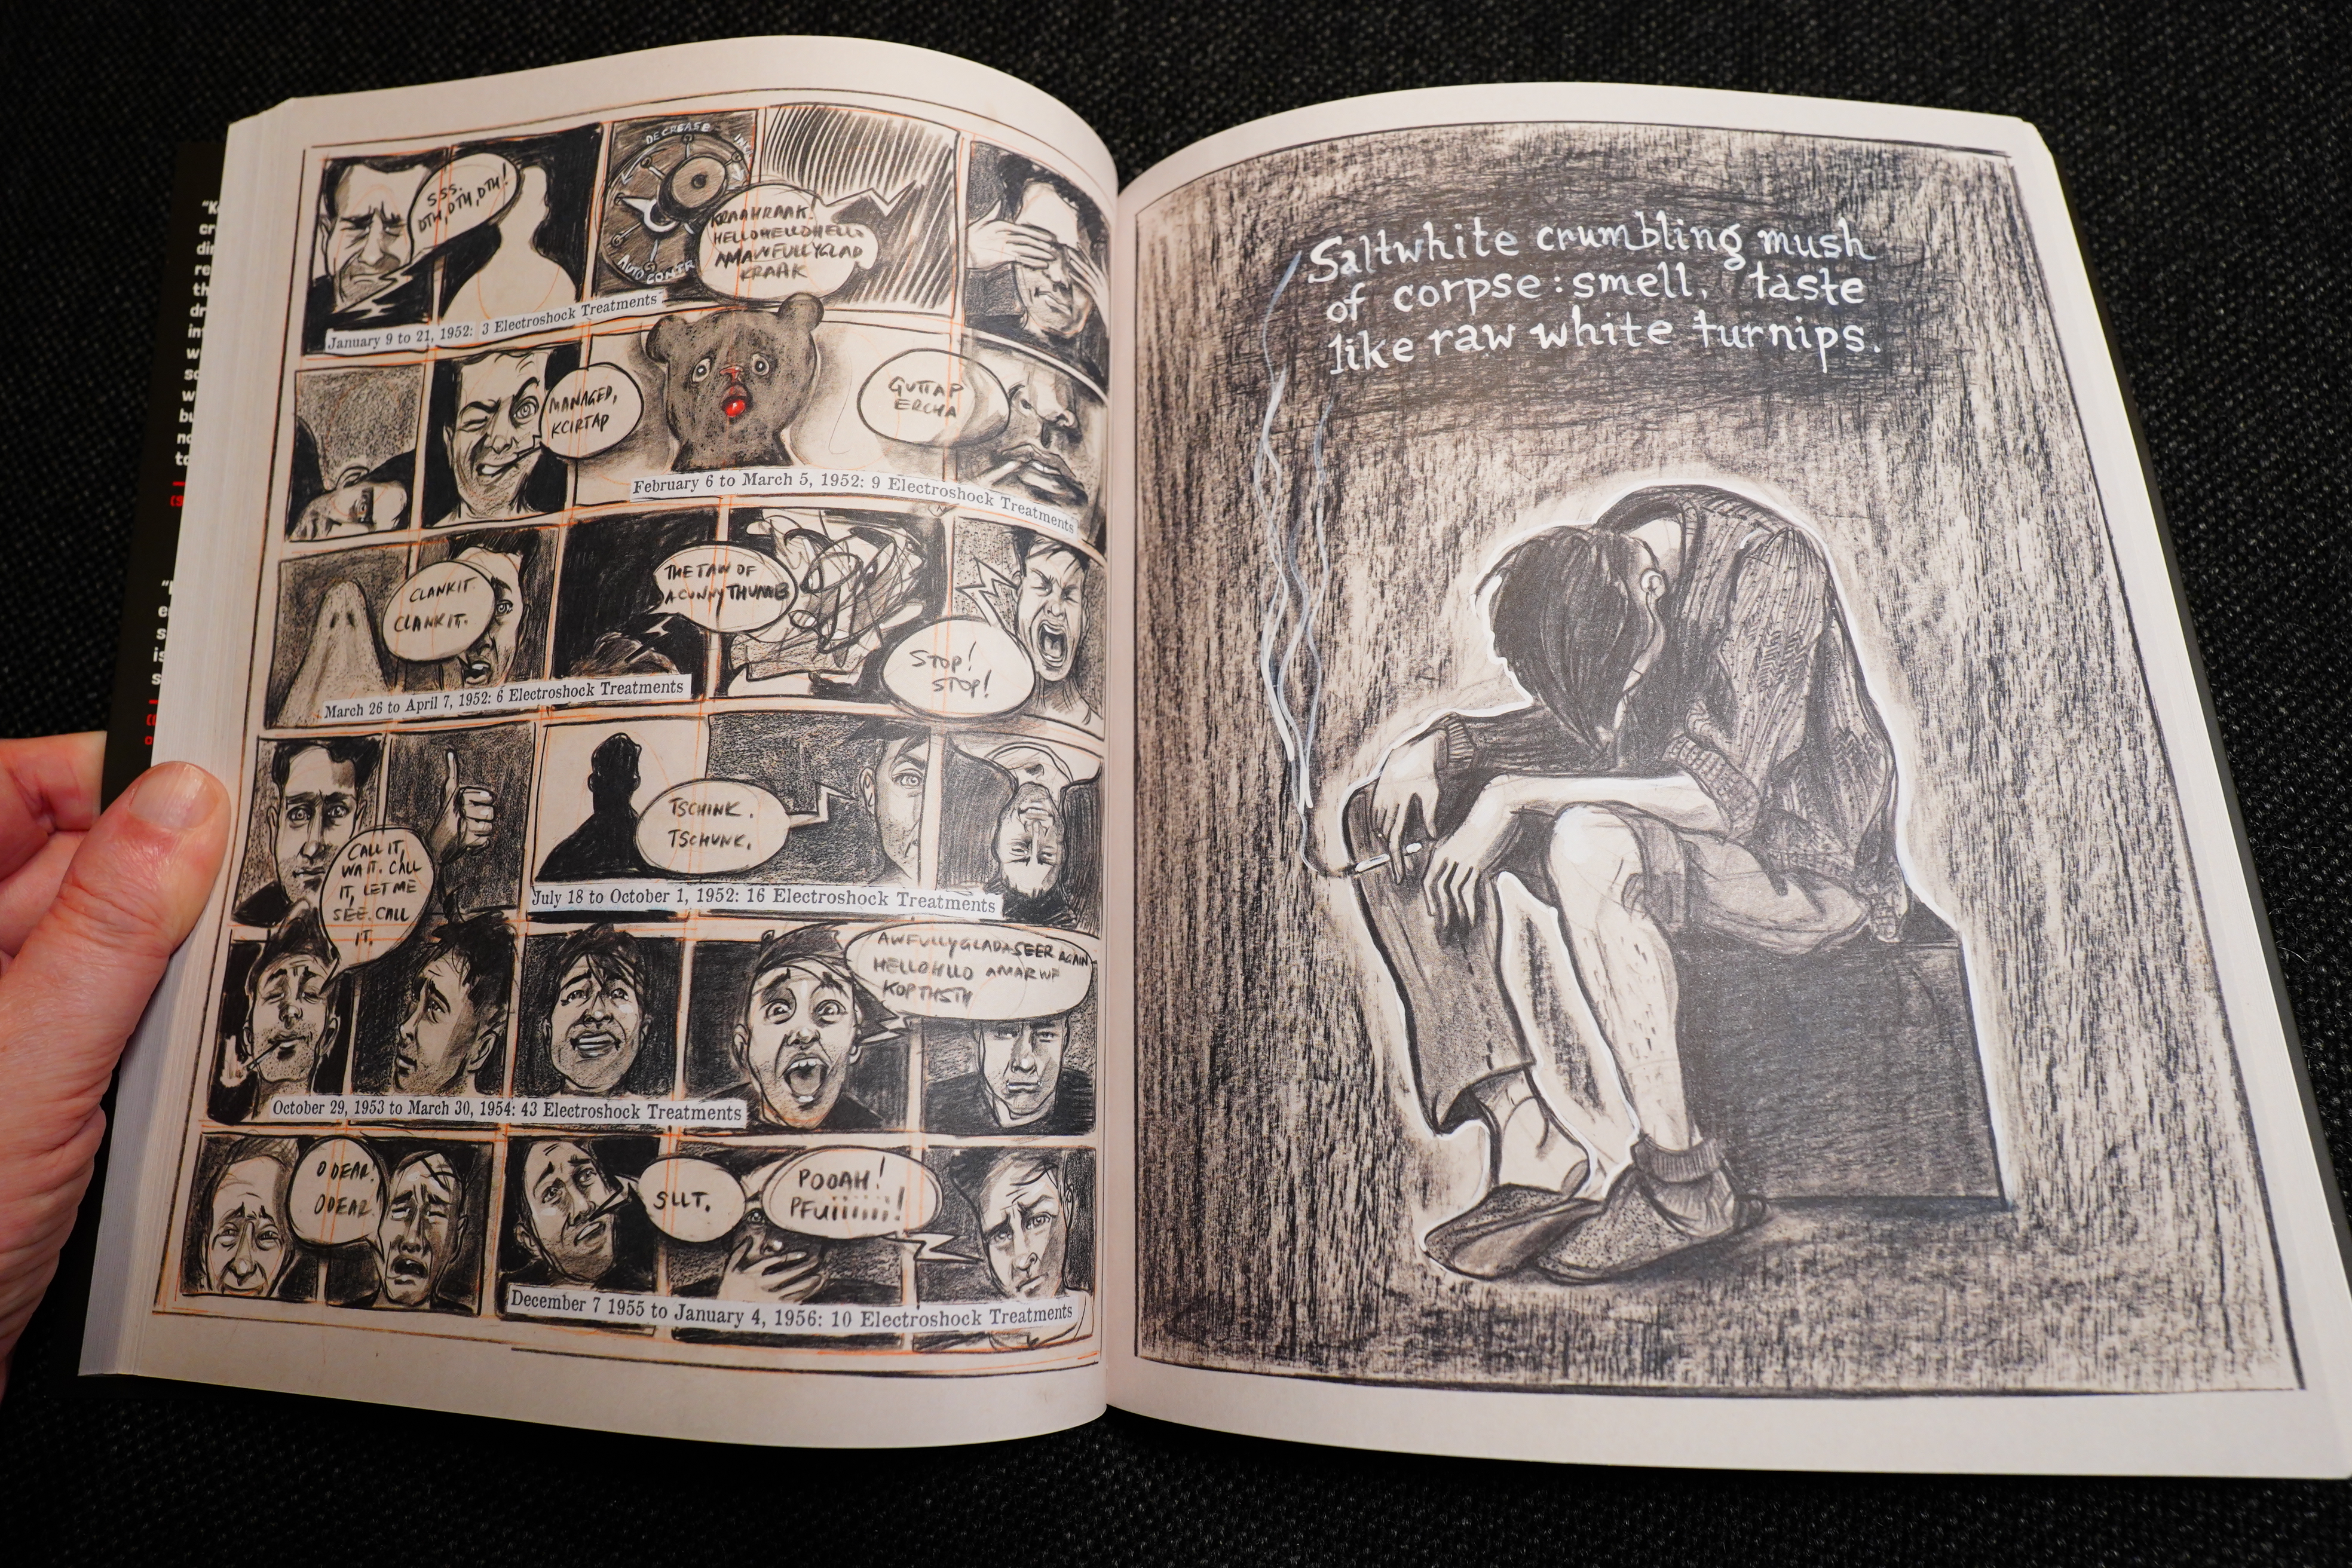 SSS.
DTH, DTH, DTH!
DECREASE
AUTO
KRAAHRAAK!
HELLOHELLOHELLO
AMAWFULLYGLAD
KRAAK
January 9 to 21, 1952: 3 Electroshock Treatments
MANAGED,
KCIRTAP
GUTTAP
ERCHA
February 6 to March 5, 1952: 9 Electroshock Treatments
CLANKIT
CLANKIT.
THE TAW OF
A CUNNY THUMB
STOP!
STOP!
March 26 to April 7, 1952: 6 Electroshock Treatments
CALL IT,
WAIT. CALL
IT, LET ME
SEE. CALL
IT.
TSCHINK.
TSCHUNK.
July 18 to October 1, 1952: 16 Electroshock Treatments
AWFULLYGLADASEER AGAIN
HELLOHLLO AMARWF
KOPTHSTH
October 29, 1953 to March 30, 1954: 43 Electroshock Treatments
O DEAR!
O DEAR!
SLLT.
POOAH!
PFuiiiiiii!
December 7 1955 to January 4, 1956: 10 Electroshock Treatments
Saltwhite crumbling mush
of corpse: smell, taste
like raw white turnips.